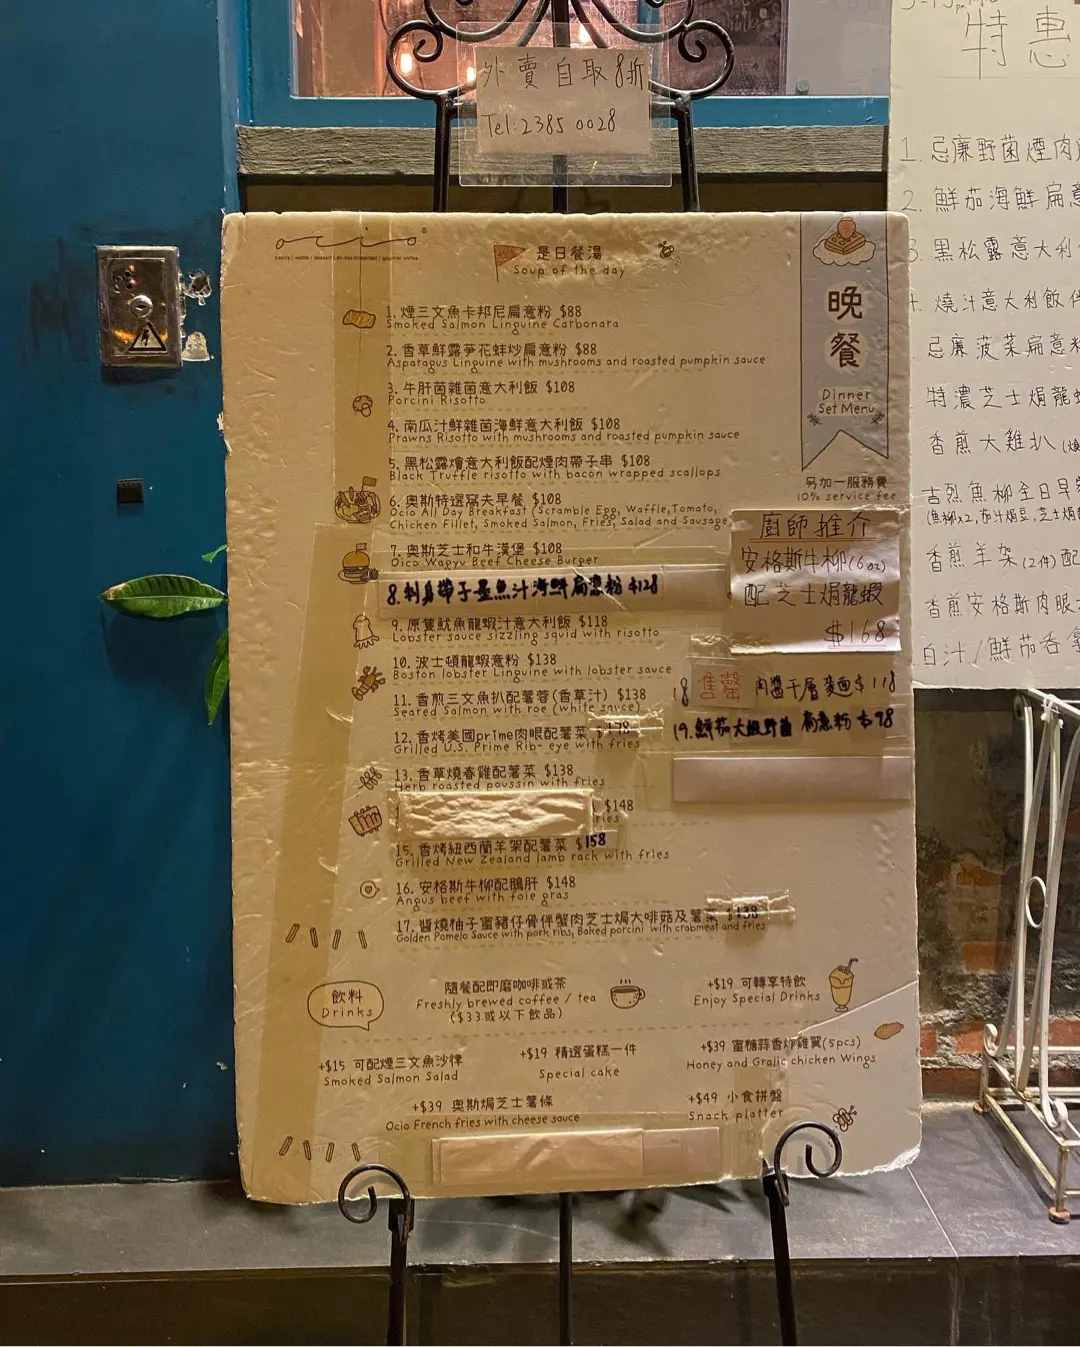 外賣自取8折
Tel:2385 0028
ocio
是日餐湯
Soup of the day
晚餐
Dinner
Set Menu
另加一服務費
10% service fee
1. 煙三文魚卡邦尼扁意粉 $88
Smoked Salmon Linguine Carbonara
2. 香草鮮露笋花蚌炒扁意粉 $88
Asparagus Linguine with mushrooms and roasted pumpkin sauce
3. 牛肝菌雜菌意大利飯 $108
Porcini Risotto
4. 南瓜汁鮮雜菌海鮮意大利飯 $108
Prawns Risotto with mushrooms and roasted pumpkin sauce
5. 黑松露燴意大利飯配煙肉帶子串 $108
Black Truffle risotto with bacon wrapped scallops
6. 奧斯特選窩夫早餐 $108
Ocio All Day Breakfast (Scramble Egg, Waffle,Tomato,
Chicken Fillet, Smoked Salmon, Fries, Salad and Sausage
7. 奧斯芝士和牛漢堡 $108
Oico Wagyu Beef Cheese Burger
8.刺身帶子墨魚汁海鮮扁意粉 $128
9. 原隻魷魚龍蝦汁意大利飯 $118
Lobster sauce sizzling squid with risotto
10. 波士頓龍蝦意粉 $138
Boston lobster Linguine with lobster sauce
11. 香煎三文魚扒配薯蓉(香草汁) $138
Seared Salmon with roe (white sauce)
12. 香烤美國prime肉眼配薯菜 $178
Grilled U.S. Prime Rib- eye with fries
13. 香草燒春雞配薯菜 $138
Herb roasted poussin with fries
$148
ries
15. 香烤紐西蘭羊架配薯菜 $158
Grilled New Zealand lamb rack with fries
16. 安格斯牛柳配鵝肝 $148
Angus beef with foie gras
17. 醬燒柚子蜜豬仔骨伴蟹肉芝士焗大啡菇及薯菜 $138
Golden Pomelo Sauce with pork ribs, Baked porcini with crabmeat and fries
廚師推介
安格斯牛柳(6oz)
配芝士焗龍蝦
$168
18 售罄 肉醬千層麵$118
19.鮮茄大蝦野菌扁意粉 $98
飲料
Drinks
隨餐配即磨咖啡或茶
Freshly brewed coffee / tea
($33或以下飲品)
+$19 可轉享特飲
Enjoy Special Drinks
+$15 可配煙三文魚沙律
Smoked Salmon Salad
+$19 精選蛋糕一件
Special cake
+$39 蜜糖蒜香炸雞翼(5pcs)
Honey and Gralic chicken Wings
+$39 奧斯焗芝士薯條
Ocio French fries with cheese sauce
+$49 小食拼盤
Snack platter
特惠
1. 忌廉野菌煙肉
2. 鮮茄海鮮扁意
3. 黑松露意大利
燒汁意大利飯伴
忌廉菠菜扁意粉
特濃芝士焗龍蝦
香煎大雞扒
吉烈魚柳全日早餐
(魚柳x2,茄汁焗豆,芝士焗
香煎羊架(2件)配
香煎安格斯肉眼
白汁/鮮茄吞拿